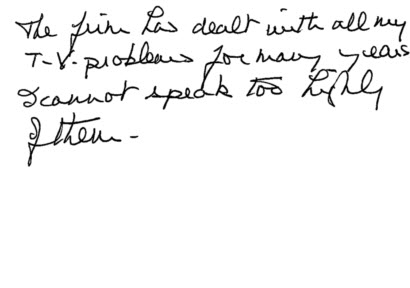 The firm has dealt with all my
T-V- problems for many years
I cannot speak too highly
of them -